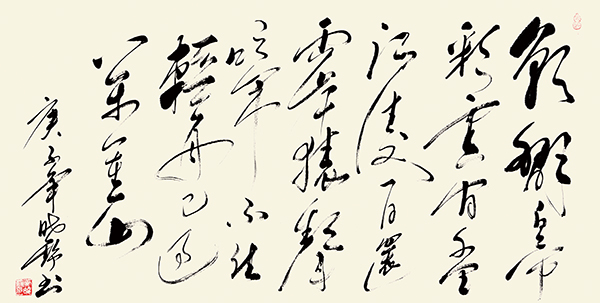 朝辭白帝
彩雲間千里
江陵一日還
兩岸猿聲
啼不住
輕舟已過
萬重山
庚子年曉書